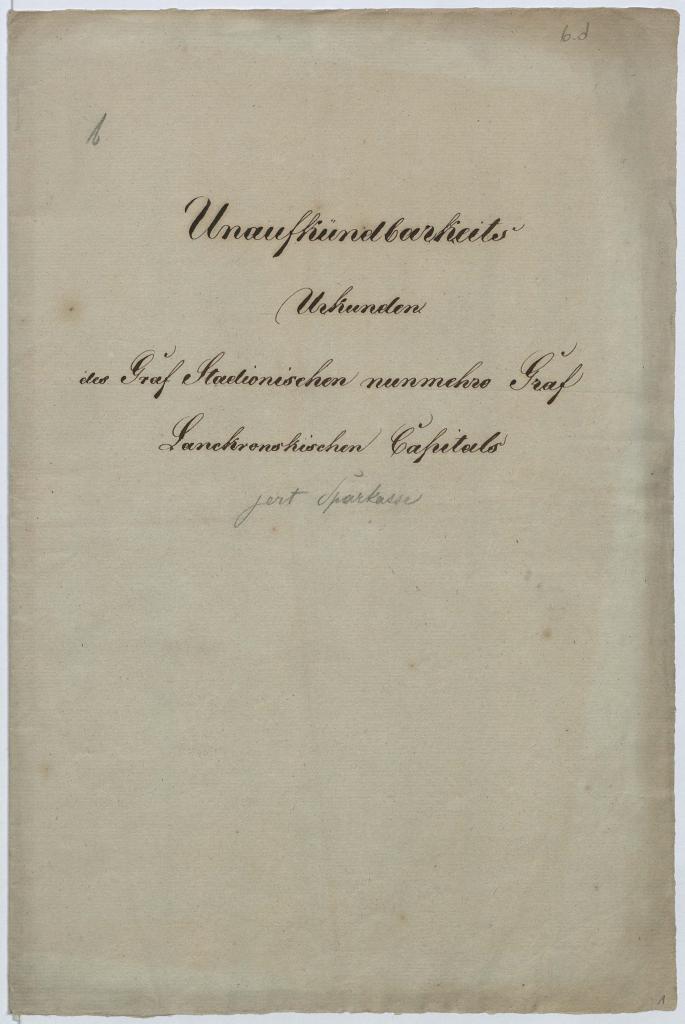 6.d
6
Unaufkündbarkeits
Urkunden
des Graf Stadionischen nunmehro Graf
Lanckronskischen Capitals
jezt Sparkasse
1